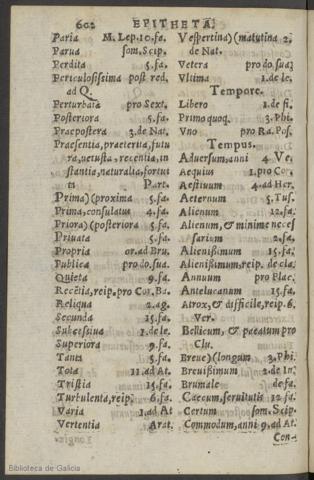 602 EPITHETA.
Paria M. Lep. 10. fa.
Parua som. Scip.
Perdita 5. fa.
Periculosissima post red.
ad Q.
Perturbata pro Sext.
Posteriora 5. fa.
Praepostera 3. de Nat.
Praesentia, praeterita, futu
ra, vetusta, recentia, in
stantia, naturalia, fortui
ti Part.
Prima) (proxima 5. fa.
Prima, consulatus 4. fa.
Priora) (posteriora 5. fa.
Priuata 5. fa.
Propria or. ad Bru.
Publica pro do. sua.
Quieta 9. fa.
Recētia, reip. pro Cor. Ba.
Reliqua 2. ag.
Secunda 15. fa.
Successiua 1. de le.
Superiora 9. fa.
Tanti 5. fa.
Tota 11. ad At.
Tristia 15. fa.
Turbulenta, reip. 6. fa.
Varia 1. ad At
Vertentia Arat.
Vespertina) (matutina 2.
de Nat.
Vetera pro do. sua.
Vltima 1. de le.
Tempore.
Libero 1. de fi.
Primo quoq. 3. Phi.
Vno pro Ra. Pos.
Tempus.
Aduersum, anni 4 Ve.
Aequius 1. pro Cor.
Aestiuum 4. ad Her.
Aeternum 5. Tus.
Alienum 12. fa.
Alienum, & minime necef
sarium 2. fa.
Alienißimum 15. fa.
Alienißimum, reip. de cla.
Annuum pro Flac.
Antelucanum 15. fa.
Atrox, & difficile, reip. 6.
Ver.
Bellicum, & pacatum pro
Clu.
Breue) (longum 3. Phi.
Breuißimum 2. de In.
Brumale de fa.
Caecum, seruitutis 12. fa.
Certum som. Scip.
Commodum, anni 9. ad At.
Con-
Biblioteca de Galicia